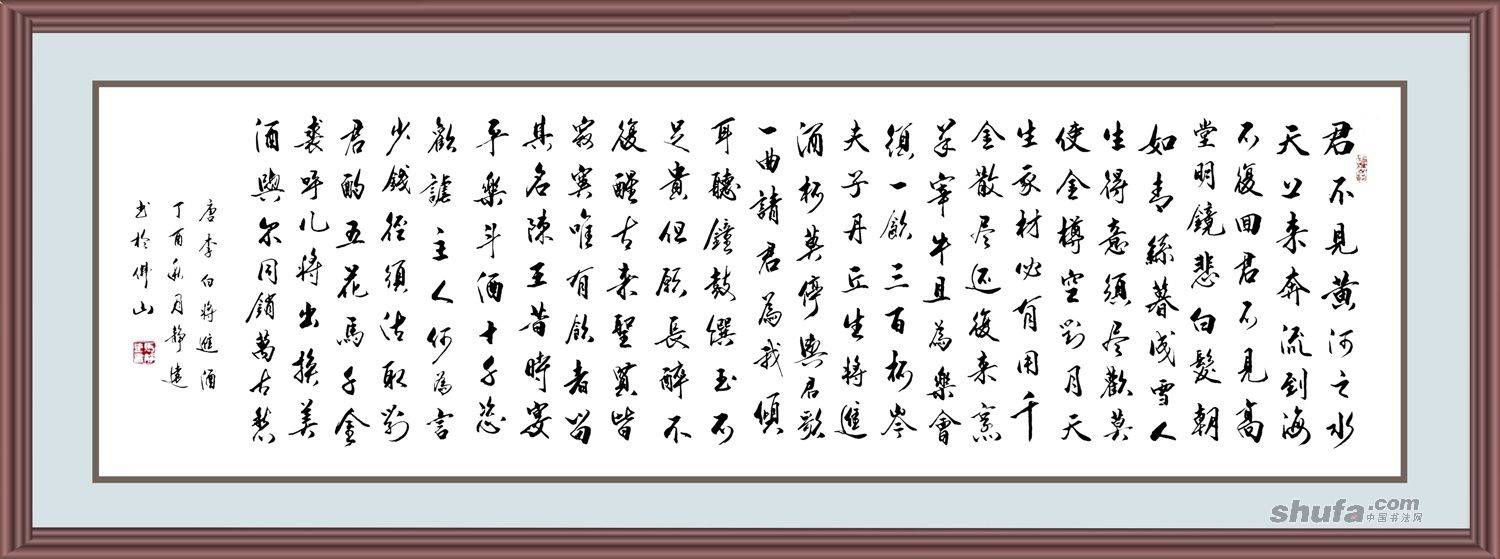 君不見黄河之水
天上来奔流到海
不復回君不見高
堂明鏡悲白髮朝
如青絲暮成雪人
生得意須尽歡莫
使金樽空對月天
生我材必有用千
金散尽还復来烹
羊宰牛且為樂會
須一飲三百杯岑
夫子丹丘生将進
酒杯莫停與君歌
一曲請君為我傾
耳聽鐘鼓饌玉不
足貴但願長醉不
復醒古来聖賢皆
寂寞唯有飲者留
其名陳王昔時宴
平樂斗酒十千恣
歡謔主人何為言
少錢徑須沽取對
君酌五花馬千金
裘呼儿将出换美
酒與尔同銷萬古愁
唐李白将進酒
丁酉秋月靜遠
书於佛山
shufa.com
中国书法网